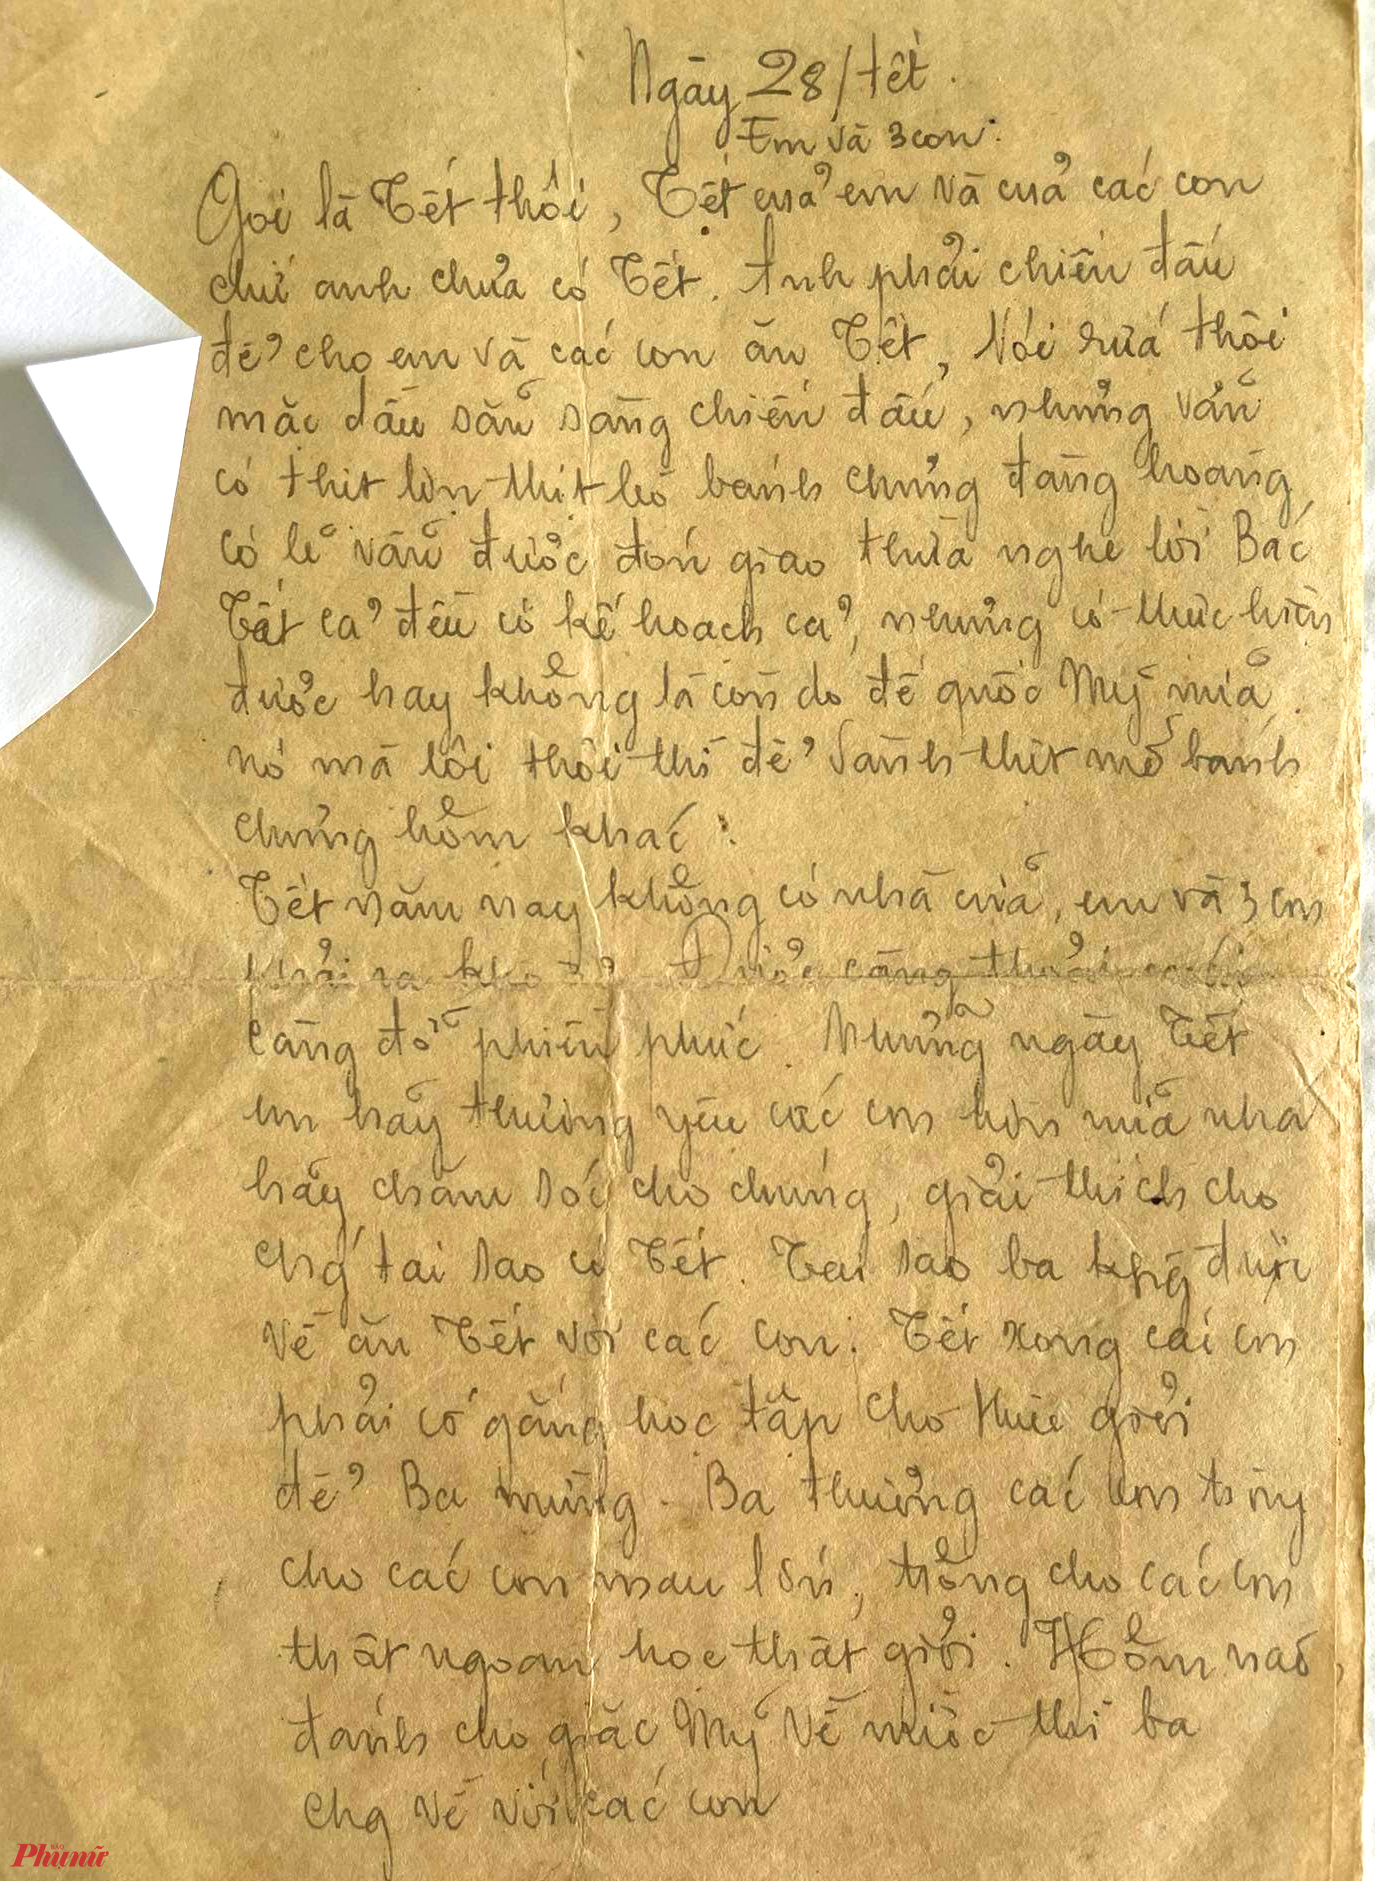 Ngày 28/tết.
Em và 3 con:
Gọi là Tết thôi, Tết của em và của các con
chứ anh chưa có Tết. Anh phải chiến đấu
để cho em và các con ăn Tết, Nói rứa thôi
mặc dầu sẵn sàng chiến đấu, nhưng vẫn
có thịt lợn thịt bò bánh chưng đàng hoàng
có lẽ vẫn được đón giao thừa nghe lời Bác
Tất cả đều có kế hoạch cả, nhưng có thực hiện
được hay không là còn do đế quốc Mỹ nữa.
nó mà lôi thôi thì để dành thịt mỡ bánh
chưng hôm khác.
Tết năm nay không có nhà cửa, em và 3 con
phải ra Được càng
càng đỡ phiền phức. Những ngày Tết
em hãy thương yêu các con hơn nữa nha
hãy chăm sóc cho chúng, giải thích cho
chg tại sao có Tết. Tại sao ba khg được
về ăn Tết với các con. Tết xong các con
phải cố gắng học tập cho thiệt giỏi
để Ba mừng. Ba thương các con
cho các con mau lớn, trông cho các con
thật ngoan học thật giỏi. Hôm nào,
đánh cho giặc Mỹ về nước thì ba
chg về với các con
BÁO
Phụ nữ